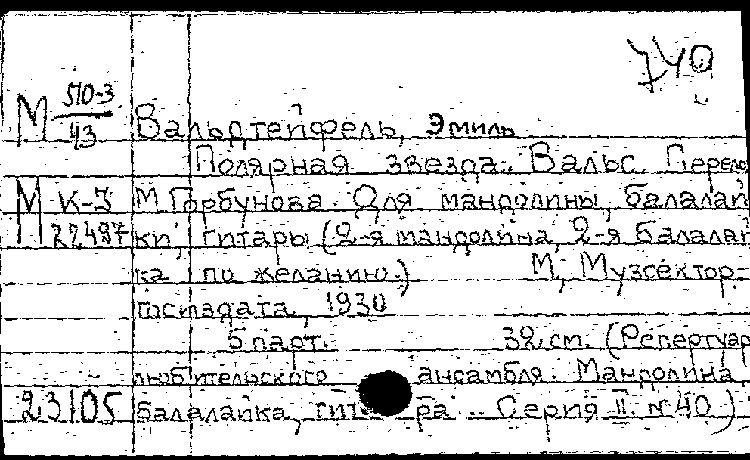 740
М 510-3/43 Вальдтейфель, Эмиль
Полярная звезда. Вальс. Перелож
М К-3 М. Горбунова. Для мандолины, балалай
22487 ки, гитары (2-я мандолина, 2-я балалай
ка по желанию.) М., Музсектор-
Госиздата, 1930
5 парт. 32 см. (Репертуар
любительского ансамбля. Мандолина,
23105 балалайка, гитара. Серия II. № 40)